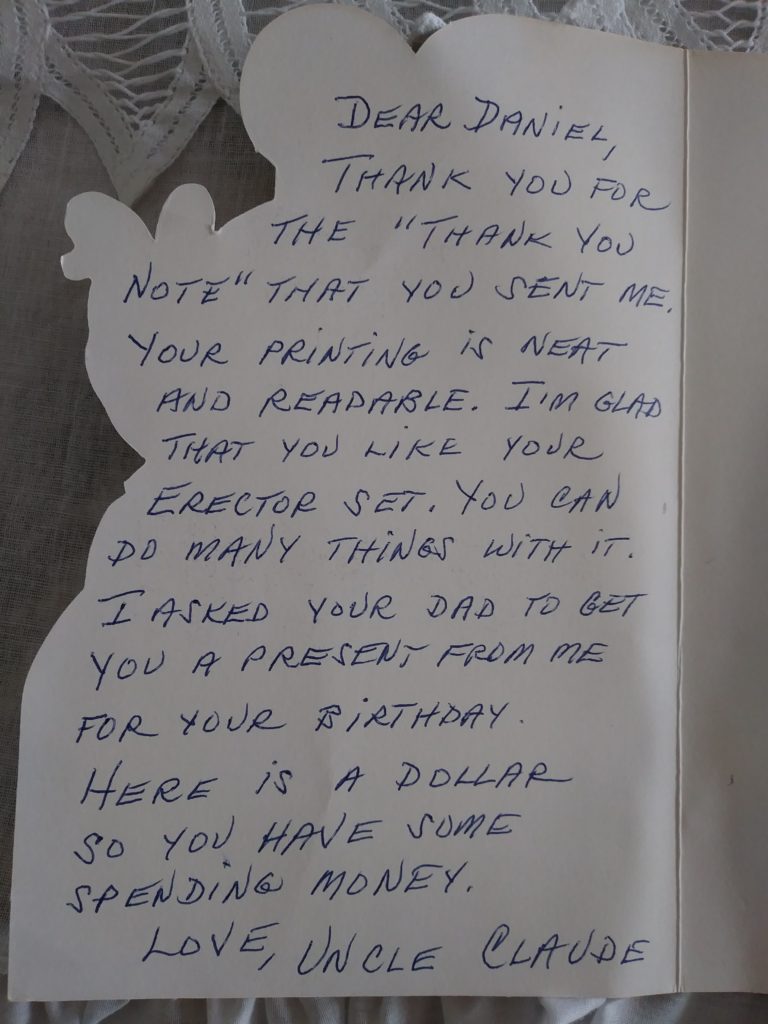 DEAR DANIEL,
THANK YOU FOR
THE "THANK YOU
NOTE" THAT YOU SENT ME.
YOUR PRINTING IS NEAT
AND READABLE. I'M GLAD
THAT YOU LIKE YOUR
ERECTOR SET. YOU CAN
DO MANY THINGS WITH IT.
I ASKED YOUR DAD TO GET
YOU A PRESENT FROM ME
FOR YOUR BIRTHDAY.
HERE IS A DOLLAR
SO YOU HAVE SOME
SPENDING MONEY.
LOVE, UNCLE CLAUDE